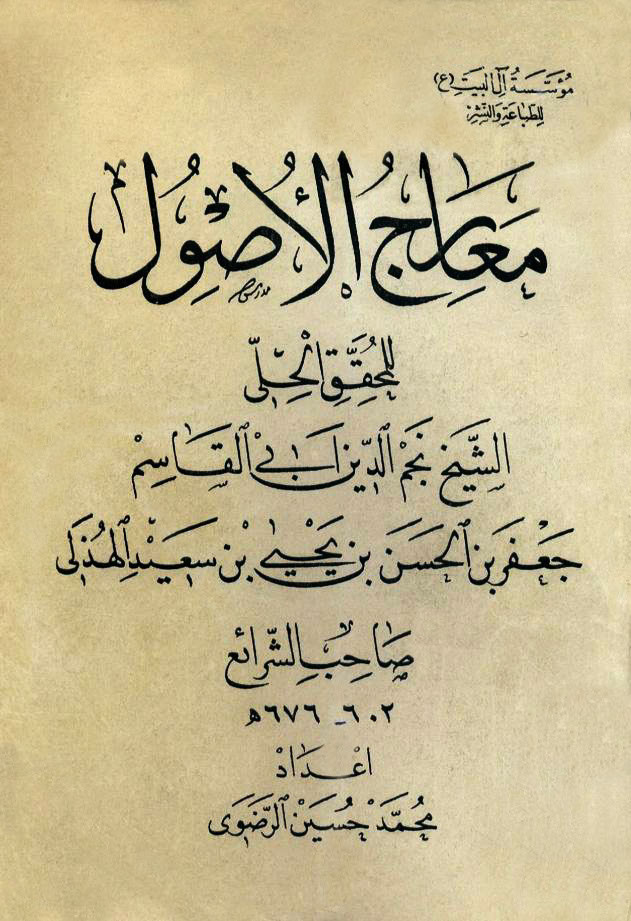 مُؤَسَّسَةُ آلِ البَيْتِ (ع)
لِلطِّبَاعَةِ وَالنَّشْرِ
مَعَارِجُ الأُصُولِ
لِلمُحَقِّقِ الْحِلِّي
الشَّيْخ نَجْم الدِّين اَبِي القَاسِمْ
جَعْفَر بن الحَسَن بن يَحْيى بْن سَعِيْد الهُذَلي
صَاحِب الشَّرائع
٦٠٢ - ٦٧٦ه
اعْدَادْ
مُحَمَّدْ حُسَيْن الرَّضَوَى